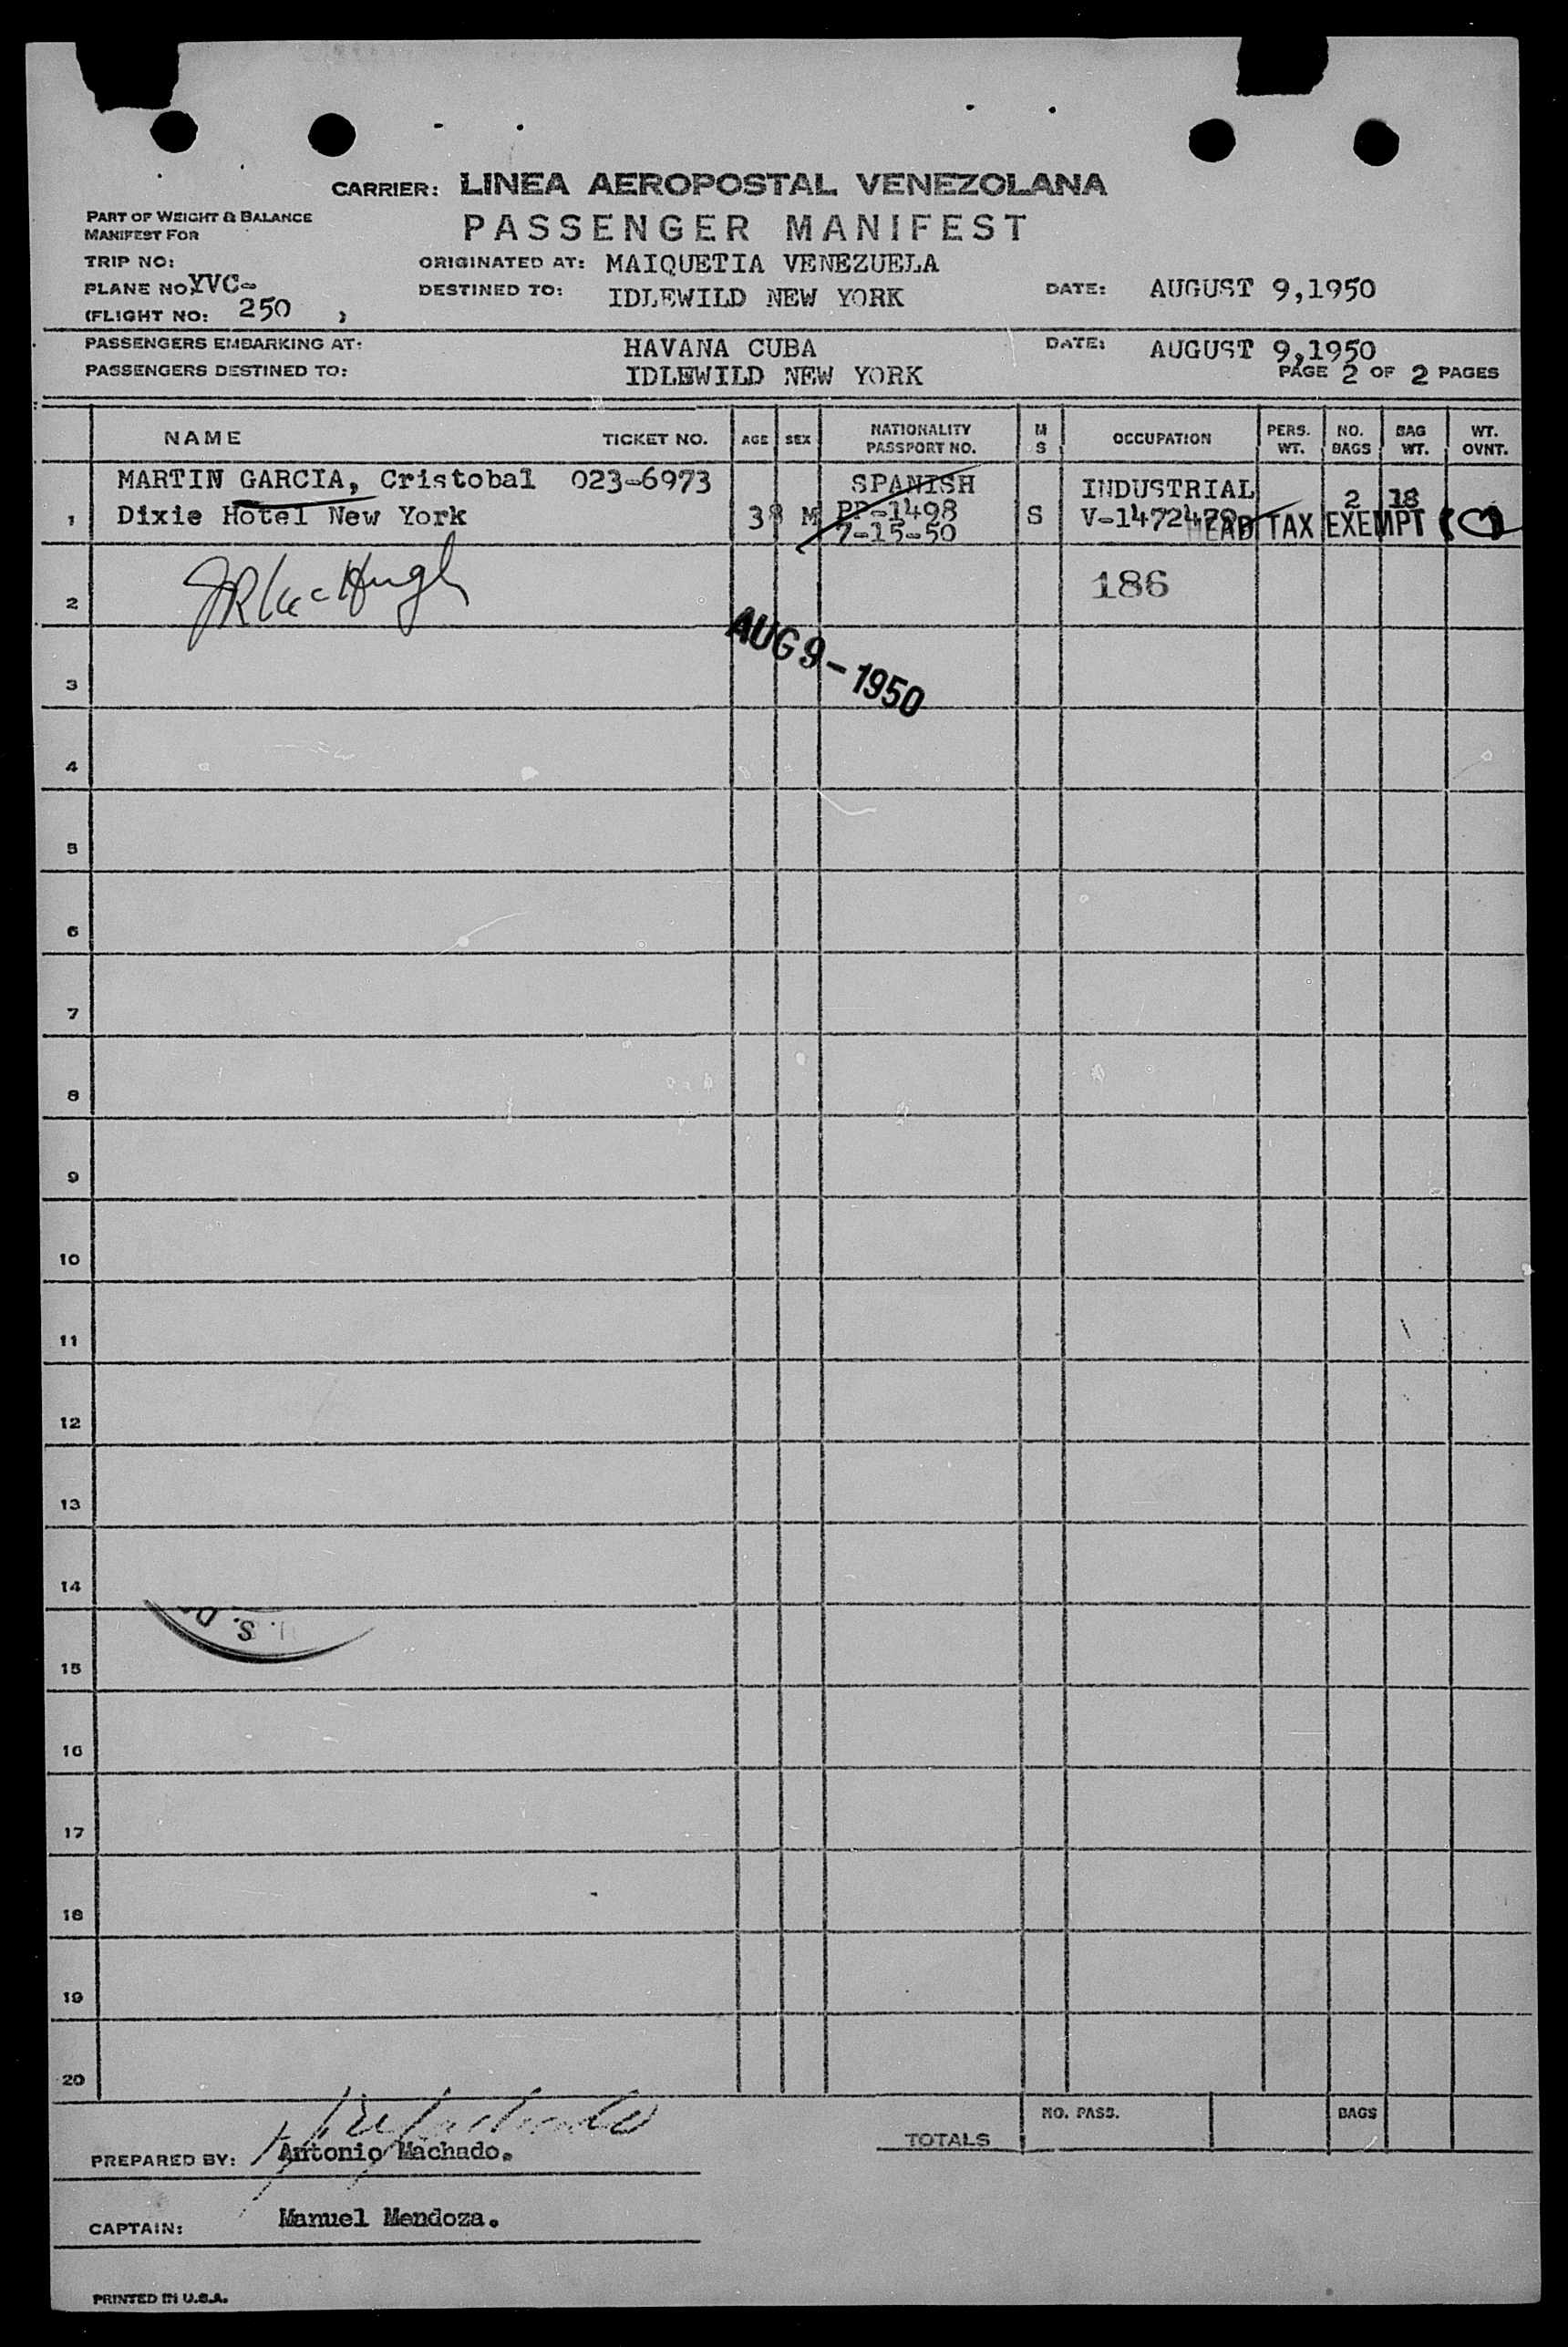 CARRIER: LINEA AEROPOSTAL VENEZOLANA
PART OF WEIGHT & BALANCE
MANIFEST FOR
PASSENGER MANIFEST
TRIP NO:
ORIGINATED AT: MAIQUETIA VENEZUELA
PLANE NO: YVC-
DESTINED TO: IDLEWILD NEW YORK
DATE: AUGUST 9,1950
(FLIGHT NO: 250 )
PASSENGERS EMBARKING AT: HAVANA CUBA
DATE: AUGUST 9,1950
PASSENGERS DESTINED TO: IDLEWILD NEW YORK
PAGE 2 OF 2 PAGES
NAME TICKET NO. AGE SEX NATIONALITY PASSPORT NO. M S OCCUPATION PERS. WT. NO. BAGS BAG WT. WT. OVNT.
MARTIN GARCIA, Cristobal 023-6973 SPANISH INDUSTRIAL
1 Dixie Hotel New York 38 M PP-1498 S 2 18
7-15-50
HEAD TAX EXEMPT
2 186
AUG 9-1950
3
4
5
6
7
8
9
10
11
12
13
14
U. S. D
15
16
17
18
19
20
NO. PASS. BAGS
TOTALS
PREPARED BY: Antonio Machado.
CAPTAIN: Manuel Mendoza.
PRINTED IN U.S.A.